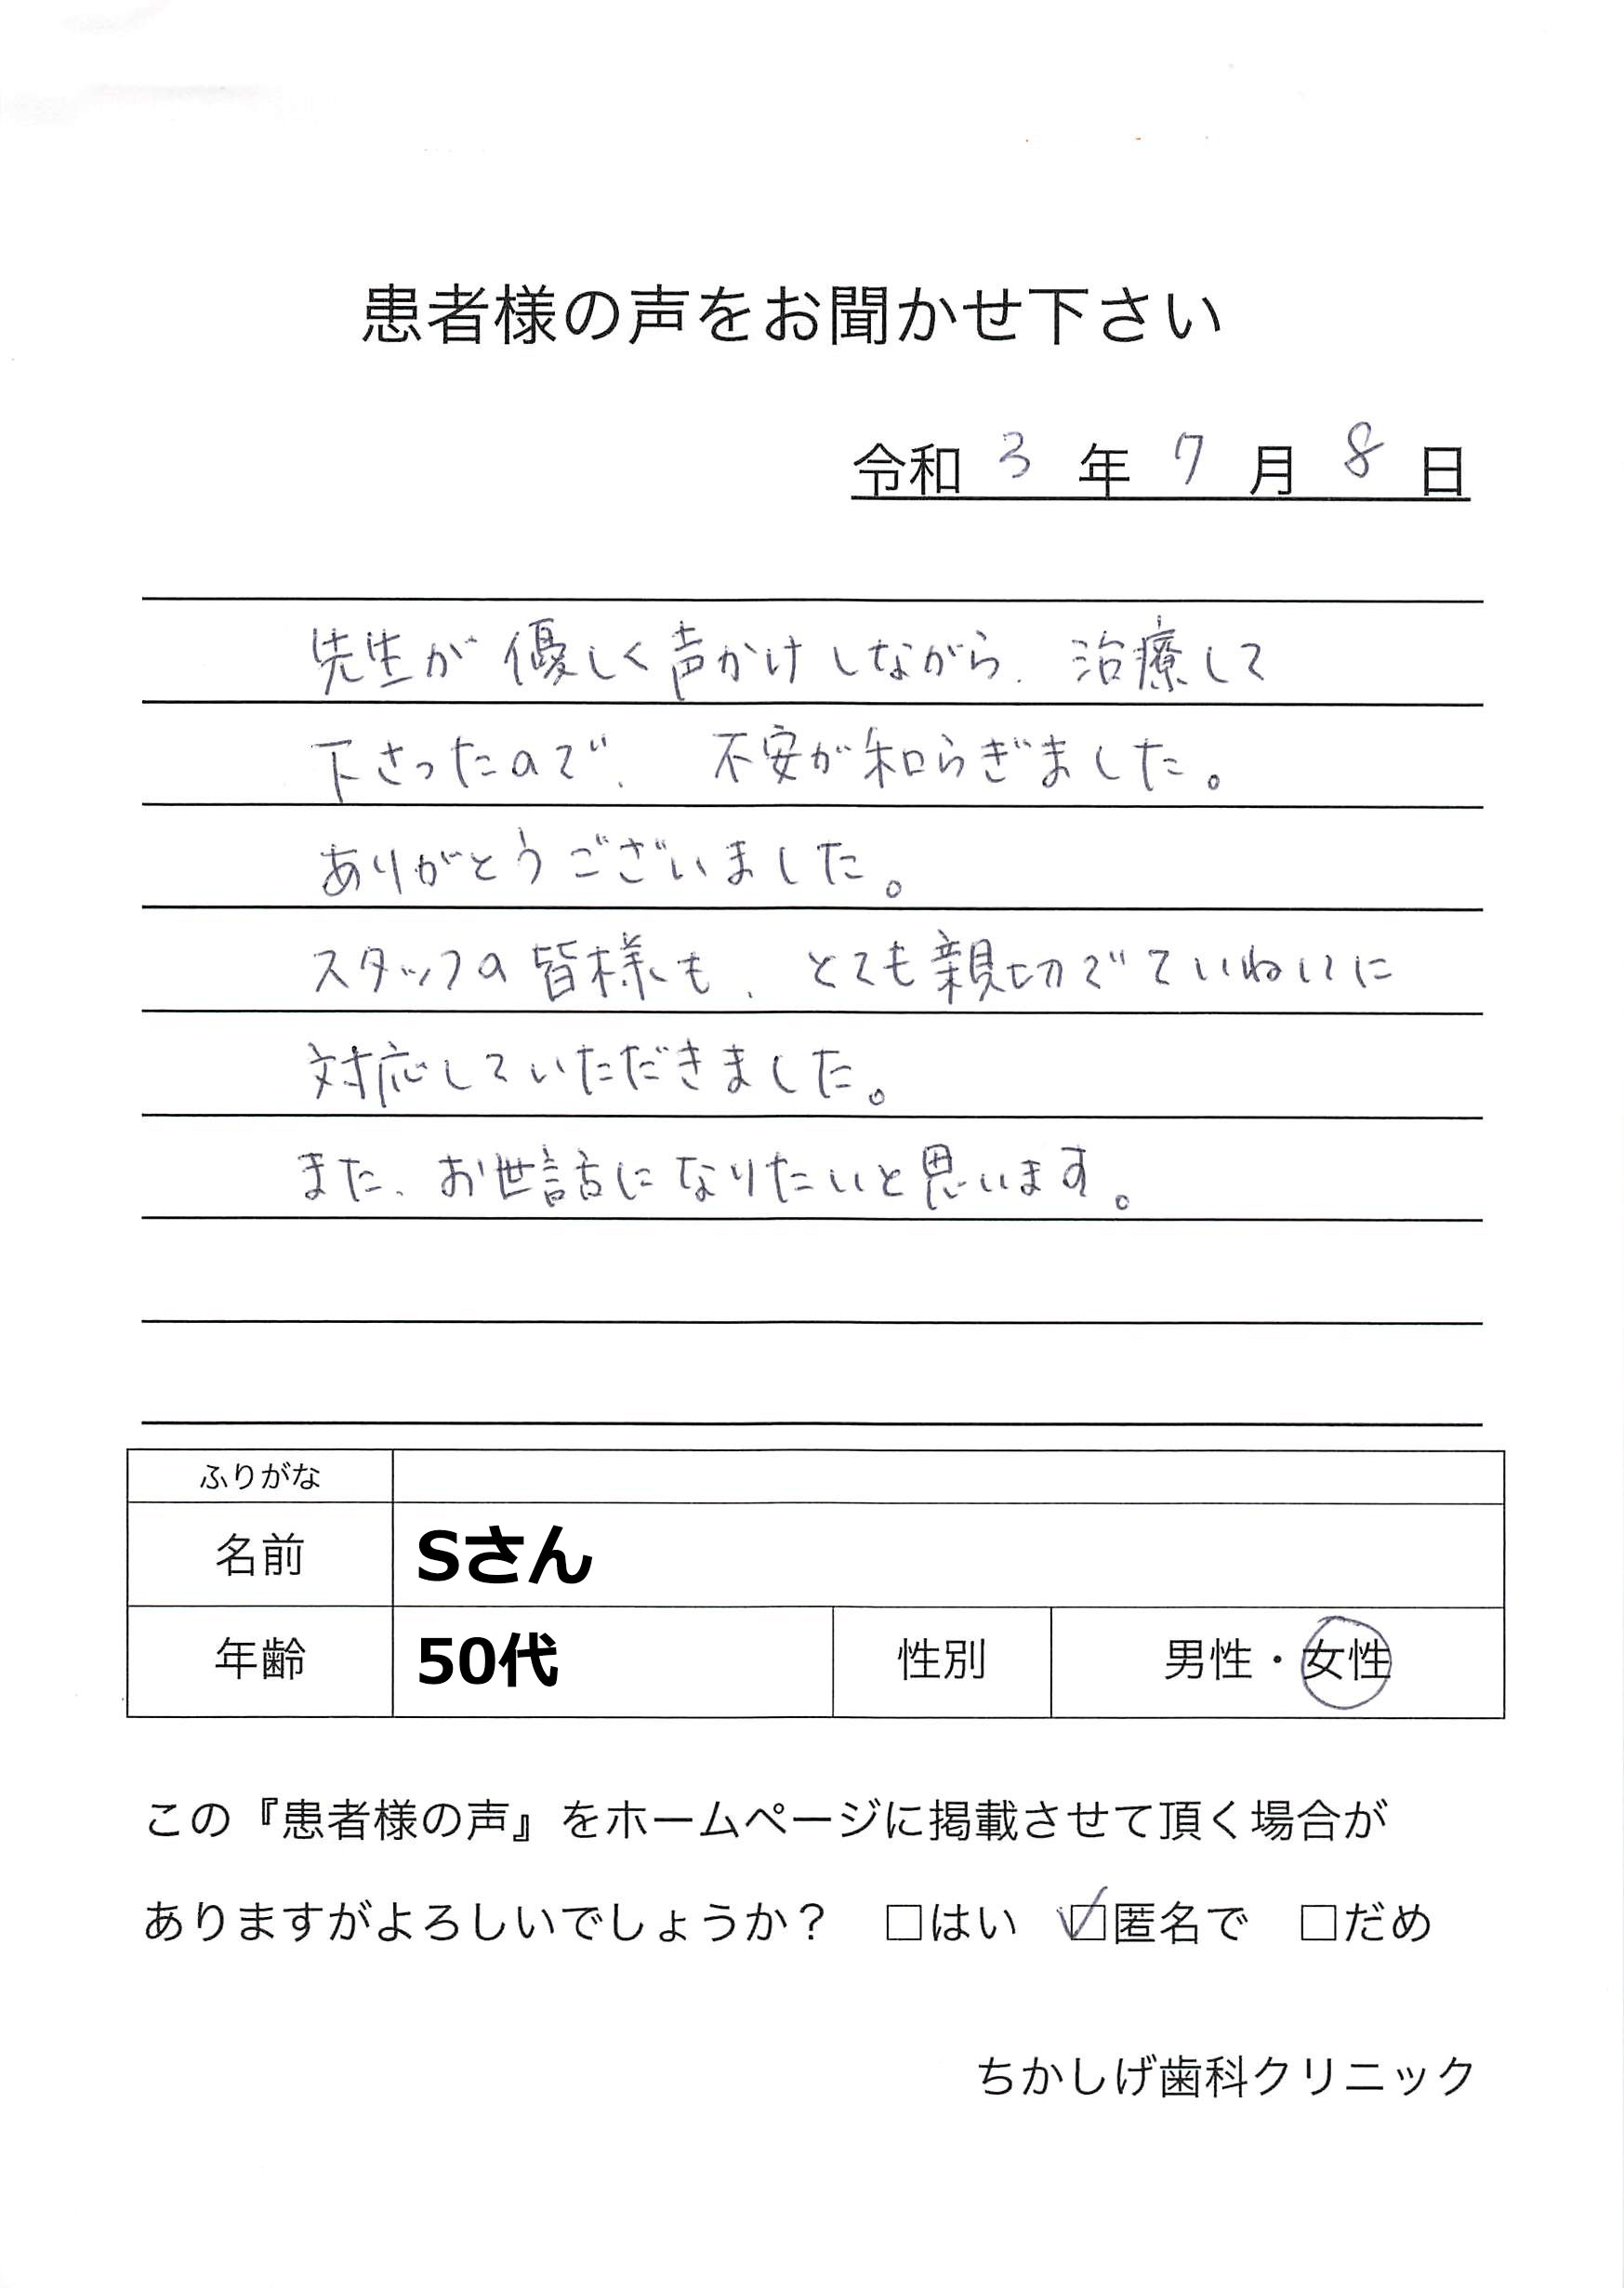 患者様の声をお聞かせ下さい
令和 3 年 7 月 8 日
先生が優しく声かけしながら、治療して
下さったので、不安が和らぎました。
ありがとうございました。
スタッフの皆様も、とても親切でていねいに
対応していただきました。
また、お世話になりたいと思います。
ふりがな
名前 Sさん
年齢 50代 性別 男性・女性
この『患者様の声』をホームページに掲載させて頂く場合が
ありますがよろしいでしょうか？ □はい ☑匿名で □だめ
ちかしげ歯科クリニック